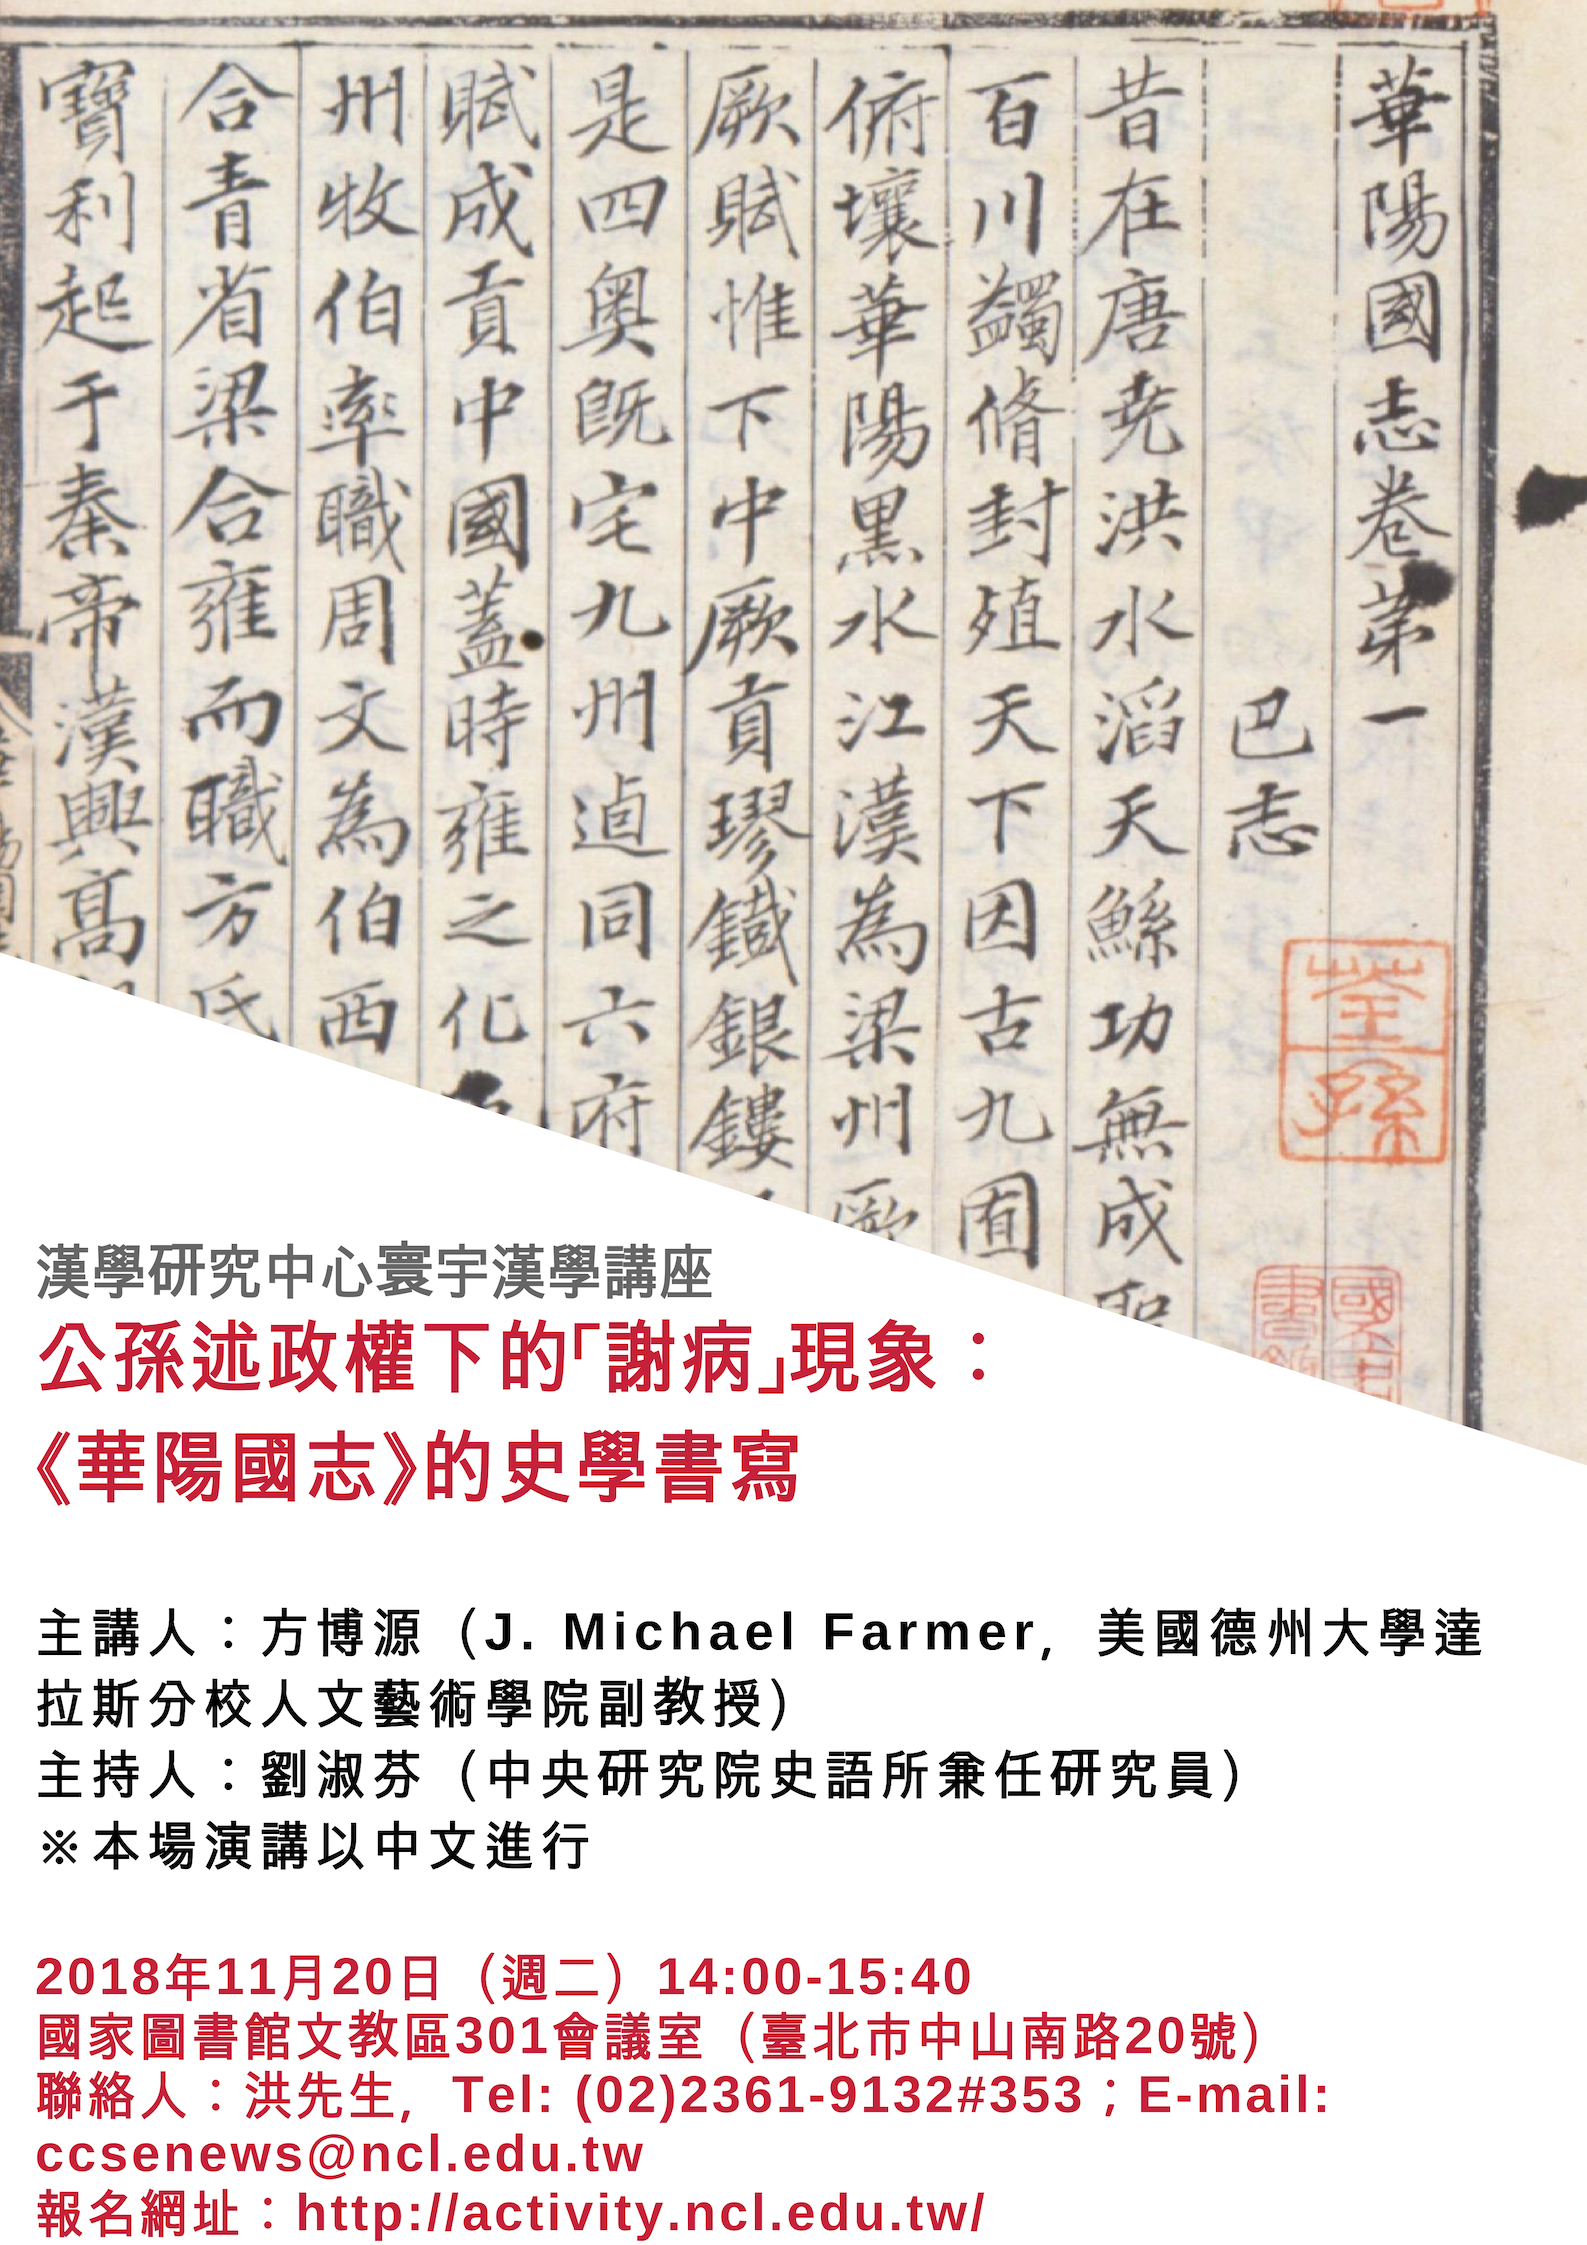 華陽國志卷苐一
巴志
昔在唐堯洪水滔天鯀功無成聖
百川蠲脩封殖天下因古九囿
俯壤華陽黑水江漢為梁州厥
厥賦惟下中厥貢璆鐵銀鏤
是四奧既宅九州逌同六府
賦成貢中國蓋時雍之化
州牧伯率職周文為伯西
合青省梁合雍而職方氏
寶利起于秦帝漢興高
荃孫
漢學研究中心寰宇漢學講座
公孫述政權下的「謝病」現象：
《華陽國志》的史學書寫
主講人：方博源（J. Michael Farmer，美國德州大學達
拉斯分校人文藝術學院副教授）
主持人：劉淑芬（中央研究院史語所兼任研究員）
※本場演講以中文進行
2018年11月20日（週二）14:00-15:40
國家圖書館文教區301會議室（臺北市中山南路20號）
聯絡人：洪先生，Tel: (02)2361-9132#353；E-mail:
ccsenews@ncl.edu.tw
報名網址：http://activity.ncl.edu.tw/